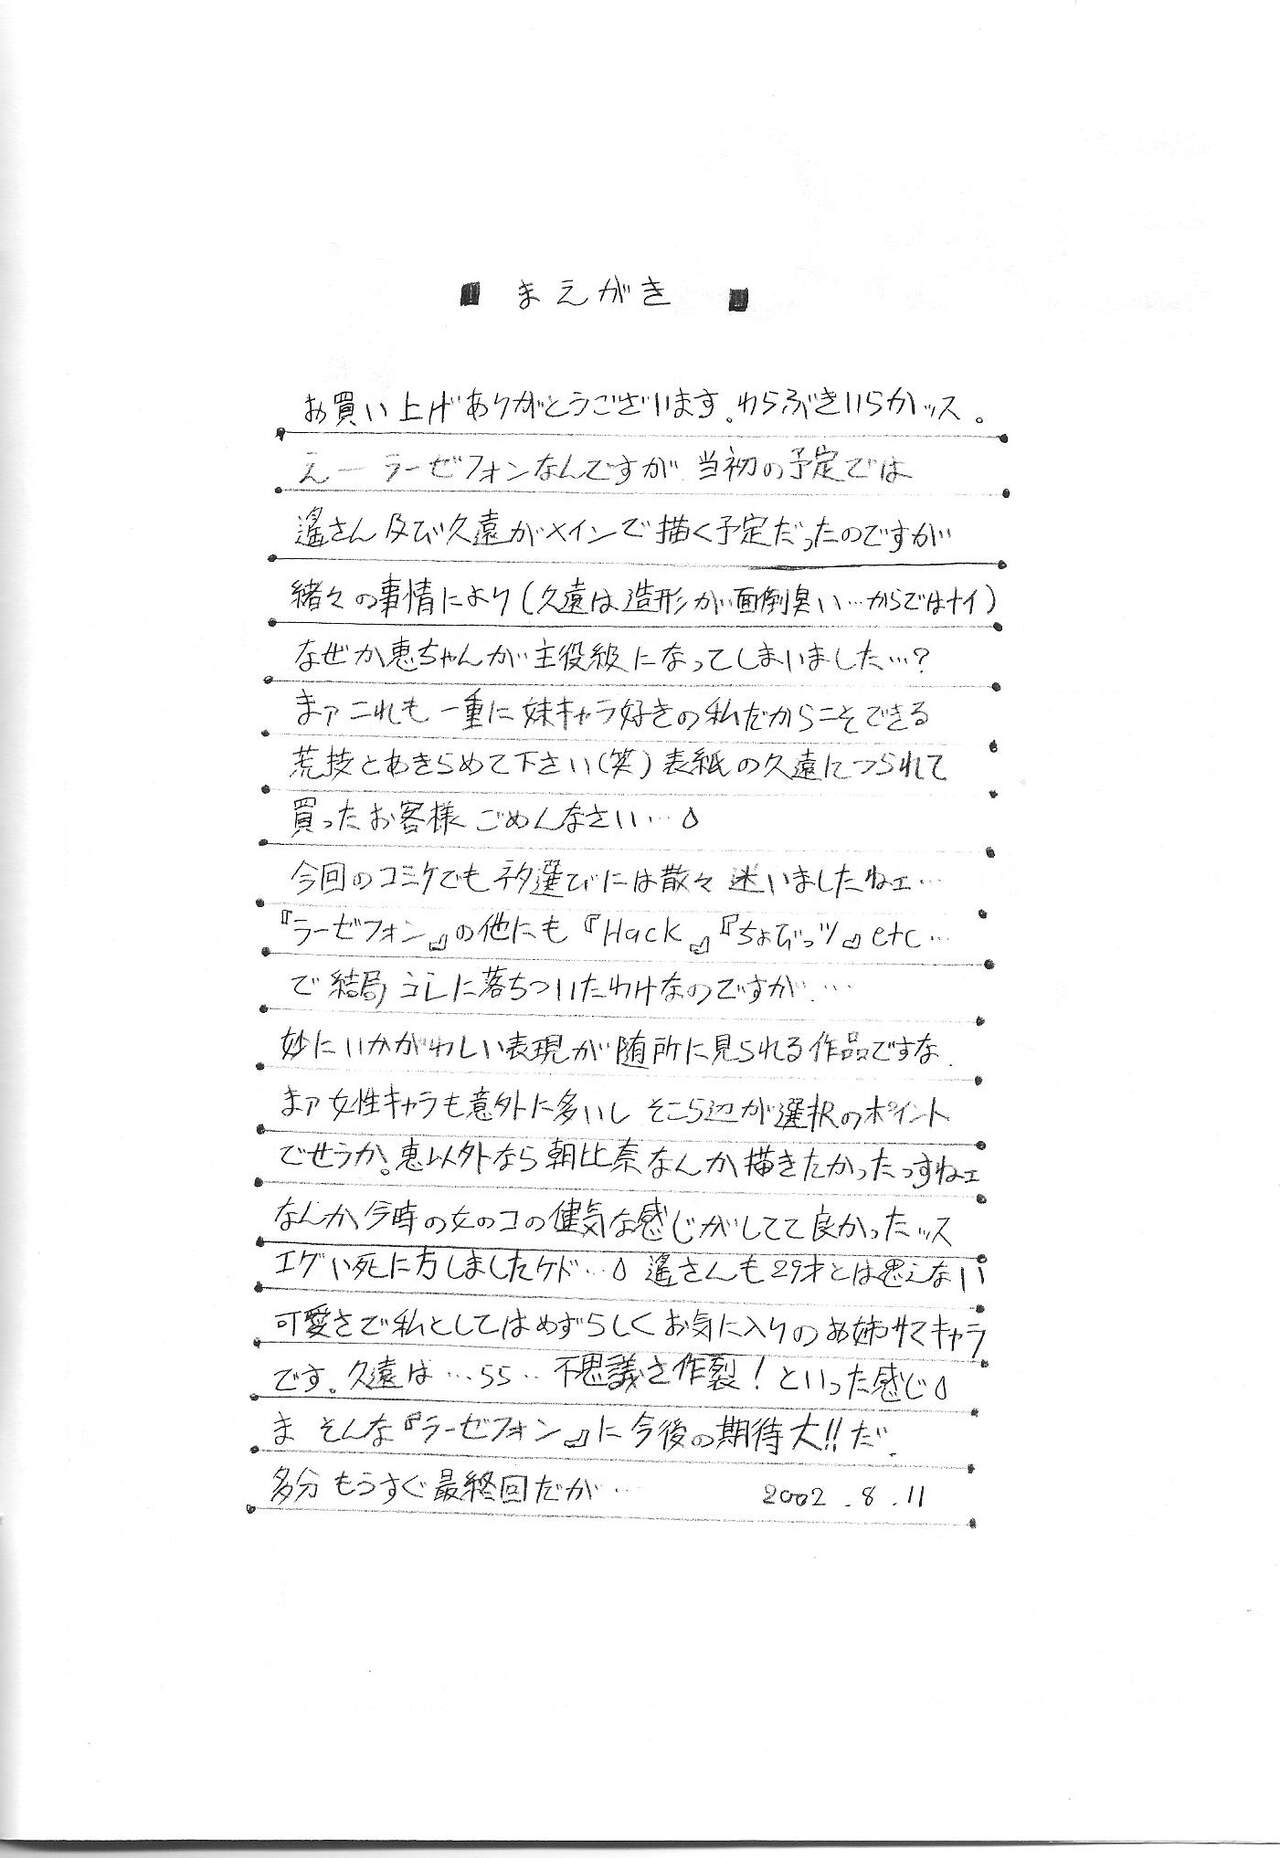 ■ まえがき ■
お買い上げありがとうございます。わらぶきいらかッス。
えー ラーゼフォンなんですが 当初の予定では
遙さん及び久遠がメインで描く予定だったのですが
緒々の事情により(久遠は造形が面倒臭い…からではナイ)
なぜか恵ちゃんが主役級になってしまいました…?
まァこれも一重に妹キャラ好きの私だからこそできる
荒技とあきらめて下さい(笑)表紙の久遠につられて
買ったお客様ごめんなさい…
今回のコミケでもネタ選びには散々迷いましたねェ…
『ラーゼフォン』の他にも『Hack』『ちょびっツ』etc…
で結局コレに落ちついたわけなのですが…
妙にいかがわしい表現が随所に見られる作品ですな.
まァ女性キャラも意外に多いし そこら辺が選択のポイント
でせうか。恵以外なら朝比奈なんか描きたかったっすねェ
なんか今時の女のコの健気な感じがしてて良かったッス
エグい死に方しましたケド… 遙さんも29才とは思えない
可愛さで私としてはめずらしくお気に入りのお姉サマキャラ
です。久遠は…ららら‥不思議さ作裂!といった感じ
ま そんな『ラーゼフォン』に今後の期待大!!だ.
多分もうすぐ最終回だが… 2002.8.11